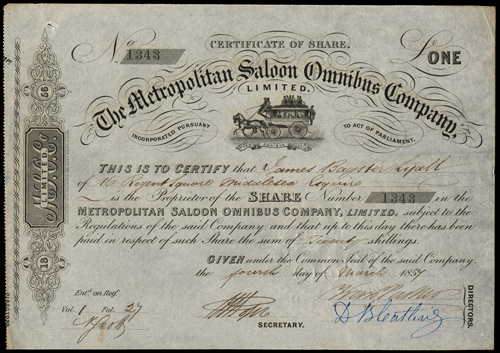 No 1343
CERTIFICATE OF SHARE.
£ ONE
The Metropolitan Saloon Omnibus Company,
LIMITED.
INCORPORATED PURSUANT TO ACT OF PARLIAMENT.
THIS IS TO CERTIFY that James Bagster Lyall
of 16 Regent Square Middlesex Esquire
is the Proprietor of the SHARE Number 1343 in the
METROPOLITAN SALOON OMNIBUS COMPANY, LIMITED, subject to the
Regulations of the said Company and that up to this day there has been
paid in respect of such Share the sum of Twenty shillings.
GIVEN under the Common Seal of the said Company.
the fourth day of March 1857
Entd. on Regr.
Vol. 1 Fol. 27
SECRETARY.
DIRECTORS.
18 LIMITED 56